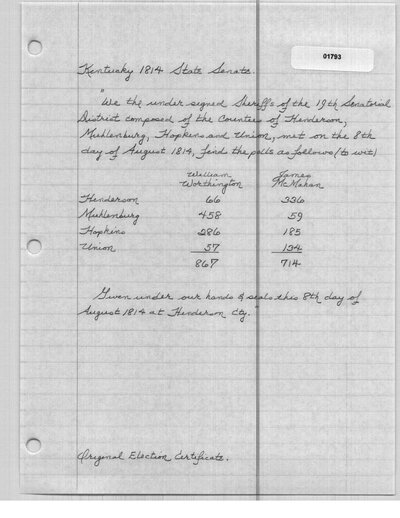 01793
Kentucky 1814 State Senate.
"We the under signed Sheriffs of the 19th Senatorial
District composed of the Counties of Henderson,
Muhlenburg, Hopkins and Union, met on the 8th
day of August 1814, find the polls as follows (to wit)
William Worthington James McMahan
Henderson 66 336
Muhlenburg 458 59
Hopkins 286 185
Union 57 134
867 714
Given under our hands & seals this 8th day of
August 1814 at Henderson Cty."
Original Election Certificate.